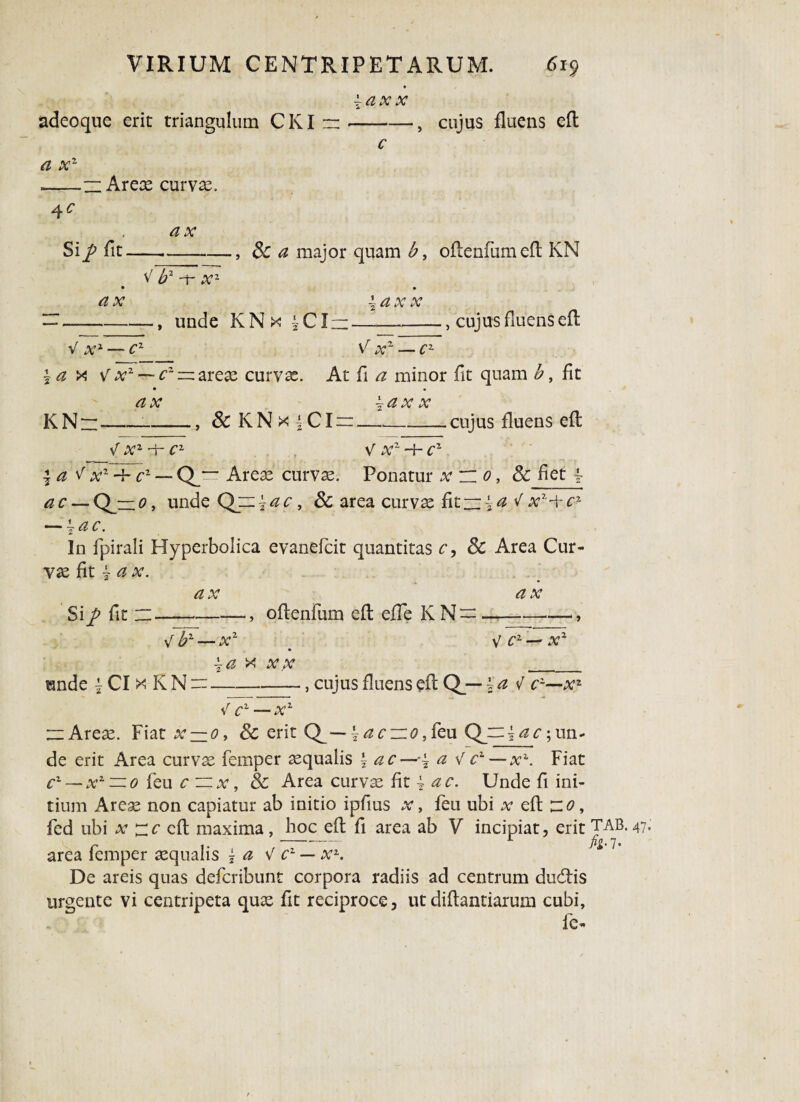 VIRIUM CENTRIPETARUM. 619
½ a x ẋ
adeoque erit triangulum CKI = ———, cujus fluens eſt
c
a x²
—— = Areæ curvæ.
4c
a x
Si p ſit ————, & a major quam b, oſtenſum eſt KN
√ b² + x²
a ẋ ½ a x ẋ
= ————, unde KN × ½CI = ————, cujus fluens eſt
√ x² — c² √ x² — c²
½ a × √ x² — c² = areæ curvæ. At ſi a minor ſit quam b, fit
a ẋ ½ a x ẋ
KN = ————, & KN × ½CI = ———— cujus fluens eſt
√ x² + c² √ x² + c²
½ a √ x² + c² — Q = Areæ curvæ. Ponatur x = o, & fiet ½
a c — Q = o, unde Q = ½ a c, & area curvæ fit = ½ a √ x² + c²
— ½ a c.
In ſpirali Hyperbolica evaneſcit quantitas c, & Area Cur-
væ fit ½ a x.
a x a ẋ
Si p ſit = ————, oſtenſum eſt eſſe KN = ————,
√ b² — x² √ c² — x²
½ a × x ẋ
unde ½ CI × KN = ————, cujus fluens eſt Q — ½ a √ c² — x²
√ c² — x²
= Areæ. Fiat x = o, & erit Q — ½ a c = o, ſeu Q = ½ a c; un-
de erit Area curvæ ſemper æqualis ½ a c — ½ a √ c² — x². Fiat
c² — x² = o ſeu c = x, & Area curvæ fit ½ a c. Unde ſi ini-
tium Areæ non capiatur ab initio ipſius x, ſeu ubi x eſt = o,
ſed ubi x = c eſt maxima, hoc eſt ſi area ab V incipiat, erit TAB. 47.
area ſemper æqualis ½ a √ c² — x². fig. 7.
De areis quas deſcribunt corpora radiis ad centrum ductis
urgente vi centripeta quæ ſit reciproce, ut diſtantiarum cubi,
ſe-